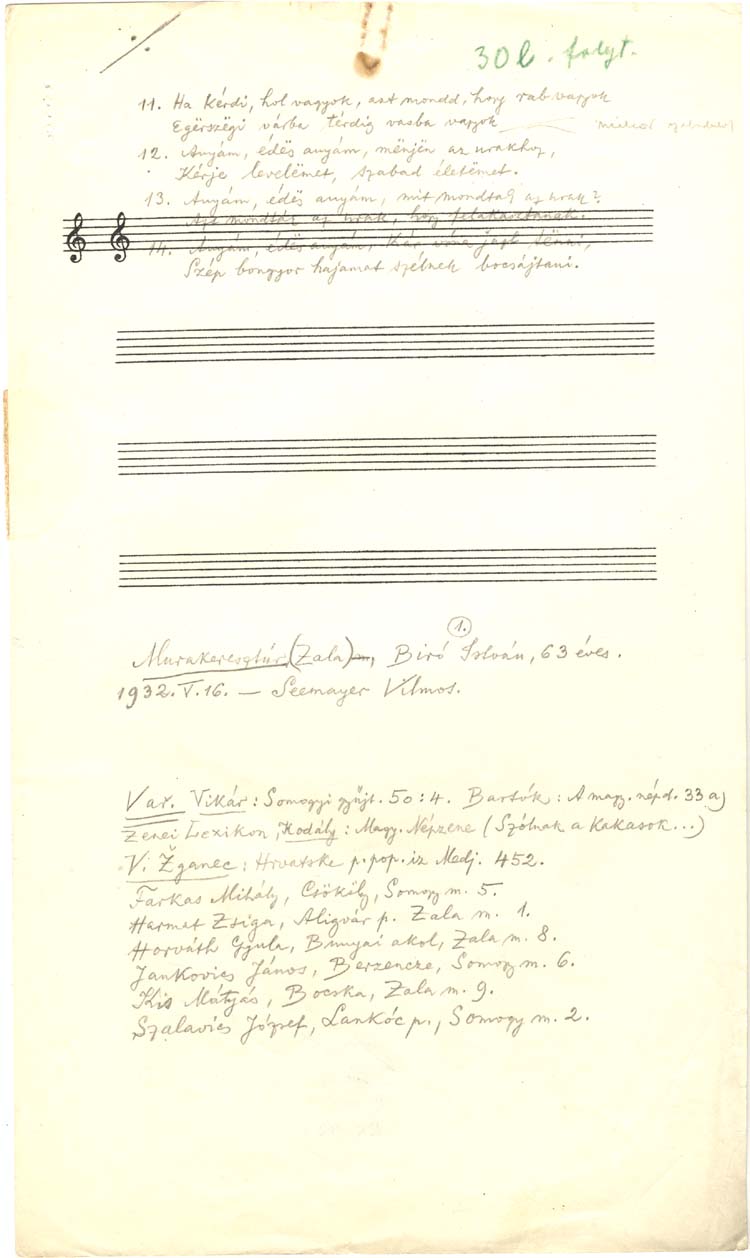 30 l. folyt.
11. Ha kérdi, hol vagyok, azt mondd, hogy rab vagyok
Egërszëgi várba térdig vasba vagyok
12. Anyám, édës anyám, mënjën az urakhoz,
Kérje levelëmet, szabad életëmet.
13. Anyám, édës anyám, mit mondtak az urak?
Azt mondták az urak, hogy felakasztanak.
14. Anyám, édës anyám, kár vóna jaft tënni,
Szép bongyor hajamat szélnek bocsájtani.
1.
Murakeresztúr, (Zala), Biró István, 63 éves.
1932. V. 16. — Seemayer Vilmos.
Var. Vikár: Somogyi gyűjt. 50:4. Bartók: A magy. népd. 33 a)
Zenei Lexikon, Kodály: Magy. Népzene (Szólnak a kakasok...)
V. Žganec: Hrvatske p. pop. iz Medj. 452.
Farkas Mihály, Csököly, Somogy m. 5.
Harmat Zsiga, Aligvár p. Zala m. 1.
Horváth Gyula, Bunyai akol, Zala m. 8.
Jankovics János, Berzencze, Somogy m. 6.
Kis Mátyás, Bocska, Zala m. 9.
Szalavics József, Lankóc p., Somogy m. 2.